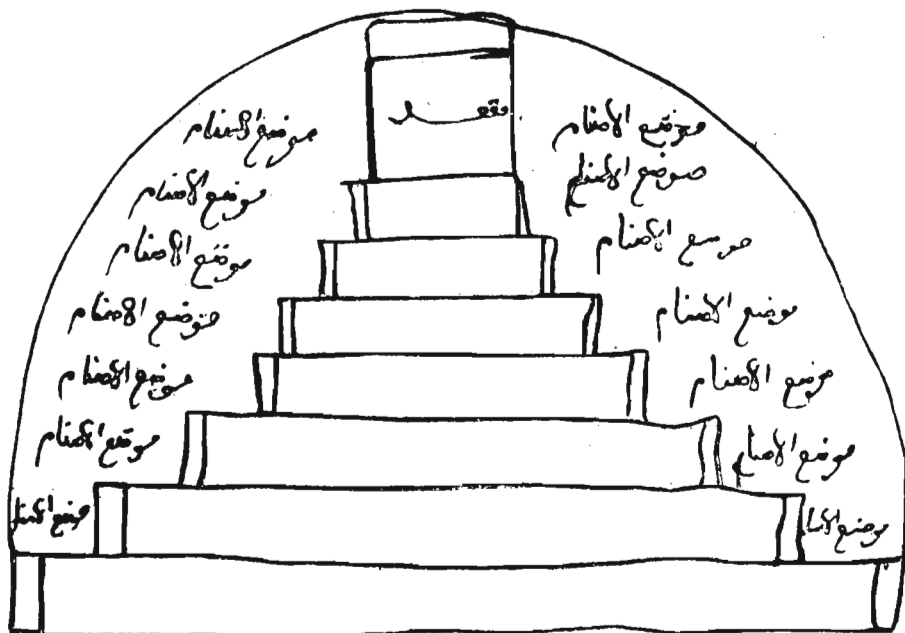 مقعد
موضع الأصنام
موضع الاصنام
موضع الأصنام
موضع الأصنام
موضع الأصنام
موضع الأصنام
موضع الاصنام
موضع الاصنام
موضع الاصنام
موضع الاصنام
موضع الأصنام
موضع
موضع